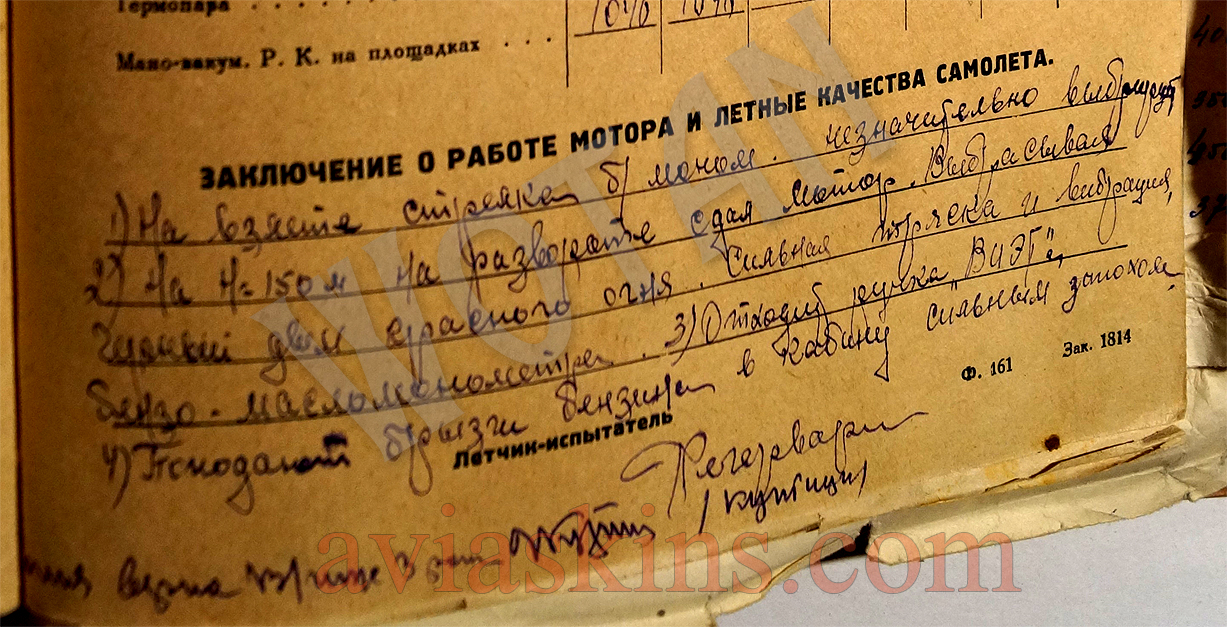 Термопара
1040 1040
Мано-вакум. Р. К. на площадках . . .
ЗАКЛЮЧЕНИЕ О РАБОТЕ МОТОРА И ЛЕТНЫЕ КАЧЕСТВА САМОЛЕТА.
1) На взлете стрелка б/ маном. незначительно вибрирует
2) На Н=150 м на развороте сдал мотор. Выбрасывал
черный дым красного огня. Сильная тряска и вибрация,
бензо-масломонометра. 3) Отходит ручка „ВИЭГ"а,
4) Попадают брызги бензина в кабину сильным запахом
Ф. 161 Зак. 1814
Летчик-испытатель
/Купицин/
верна
WOTAN
aviaskins.com